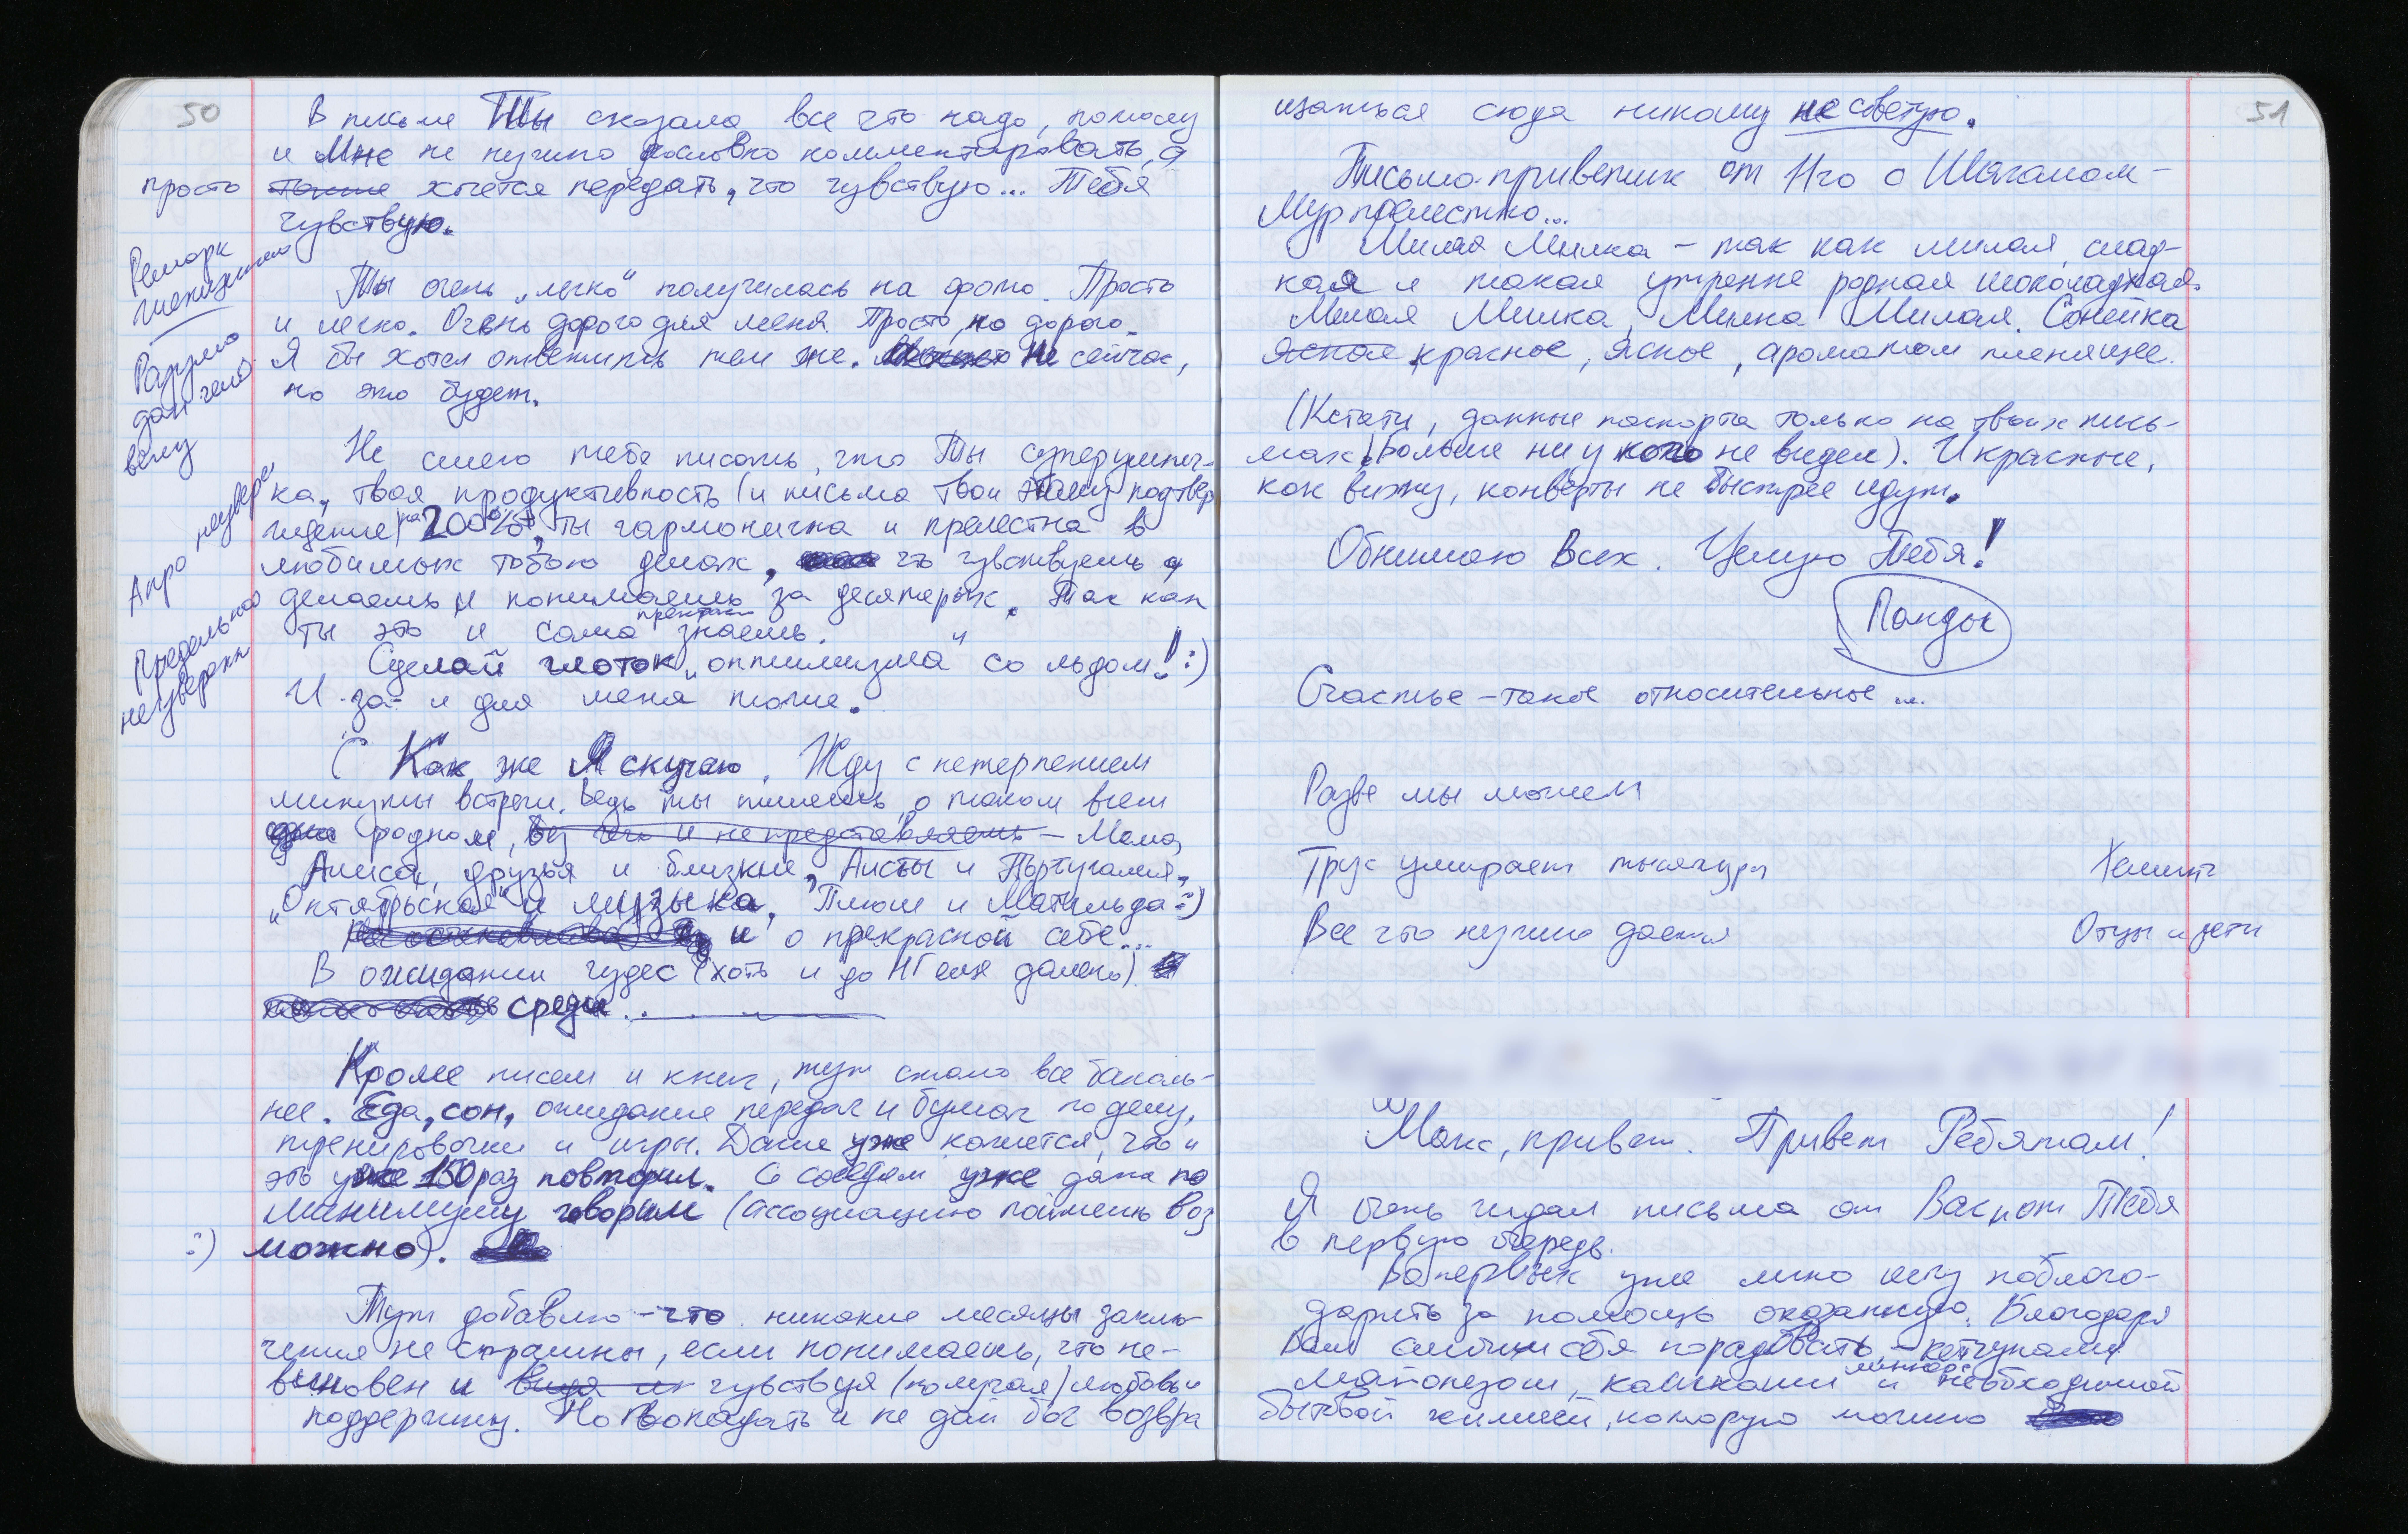 50
В письме Ты сказала все что надо, потому
и Мне не нужно дословно комментировать, а
просто хочется передать, что чувствую... Тебя
чувствую.
Ремарк
Ты очень „легко“ получилась на фото. Просто
и легко. Очень дорого для меня. Просто, но дорого.
Разум
дан чело
веку
Я бы хотел ответить тем же. Не сейчас,
но это будет.
Не смею тебе писать, что Ты суперумнич-
ка, твоя продуктивность (и письма твои этому подтвер
ждение) на 200%, ты гармонична и прелестна в
Апро неувере
любимых тобою делах, что чувствуешь и
делаешь и понимаешь за десятерых. Так как
ты это и сама прекрасно знаешь.
Предельно
неуверенн
Сделай глоток „оптимизма“ со льдом! :)
И за- и для меня тоже.
( Как же Я скучаю. Жду с нетерпением
минуты встречи. Ведь ты пишешь о таком всем
родном, без чего и не представляешь – Мама,
Алиса, друзья и близкие, Аисты и Португалия,
„Октябрьская“ и музыка, Плюш и Матильда :)
и о прекрасной себе...
В ожидании чудес (хоть и до НГ еще далеко).
среди...
Кроме писем и книг, тут стало все баналь-
нее. Еда, сон, ожидание передач и бумаг по делу,
тренировочки и игры. Даже уже кажется, что и
это уже 150 раз повторил. С соседом уже даже по
минимуму говорим (ассоциацию поймешь воз
:) можно).
Тут добавлю – что никакие месяцы заклю-
чения не страшны, если понимаешь, что не-
виновен и чувствуя (получая) любовь и
поддержку. Но попадать и не дай бог возвра
51
щаться сюда никому не советую.
Письмо-приветик от Нго с Шагалом –
Мурпрелестно...
Милая Милка – так как милая, слад-
кая и такая утренне родная шоколадная.
Милая Милка, Милка Милая. Сонейка
ясная красное, ясное, ароматом пленящее.
(Кстати, данные паспорта только на твоих пись-
мах! Больше ни у кого не видел). И красные,
как вижу, конверты не быстрее идут.
Обнимаю Всех. Целую Тебя!
Панды
Счастье – такое относительное...
Разве мы можем
Трус умирает тысячу раз
Хемингу
Все что нужно дается
Отцы и дети
Макс, привет. Привет Ребятам!
Я очень ждал письма от Вас и от Тебя
в первую очередь.
Во первых уже лично хочу поблаго-
дарить за помощь оказанную. Благодаря
Вам смогли себя порадовать – кетчупами
майонезом, кашками и необходимой
бытовой химией, которую можно